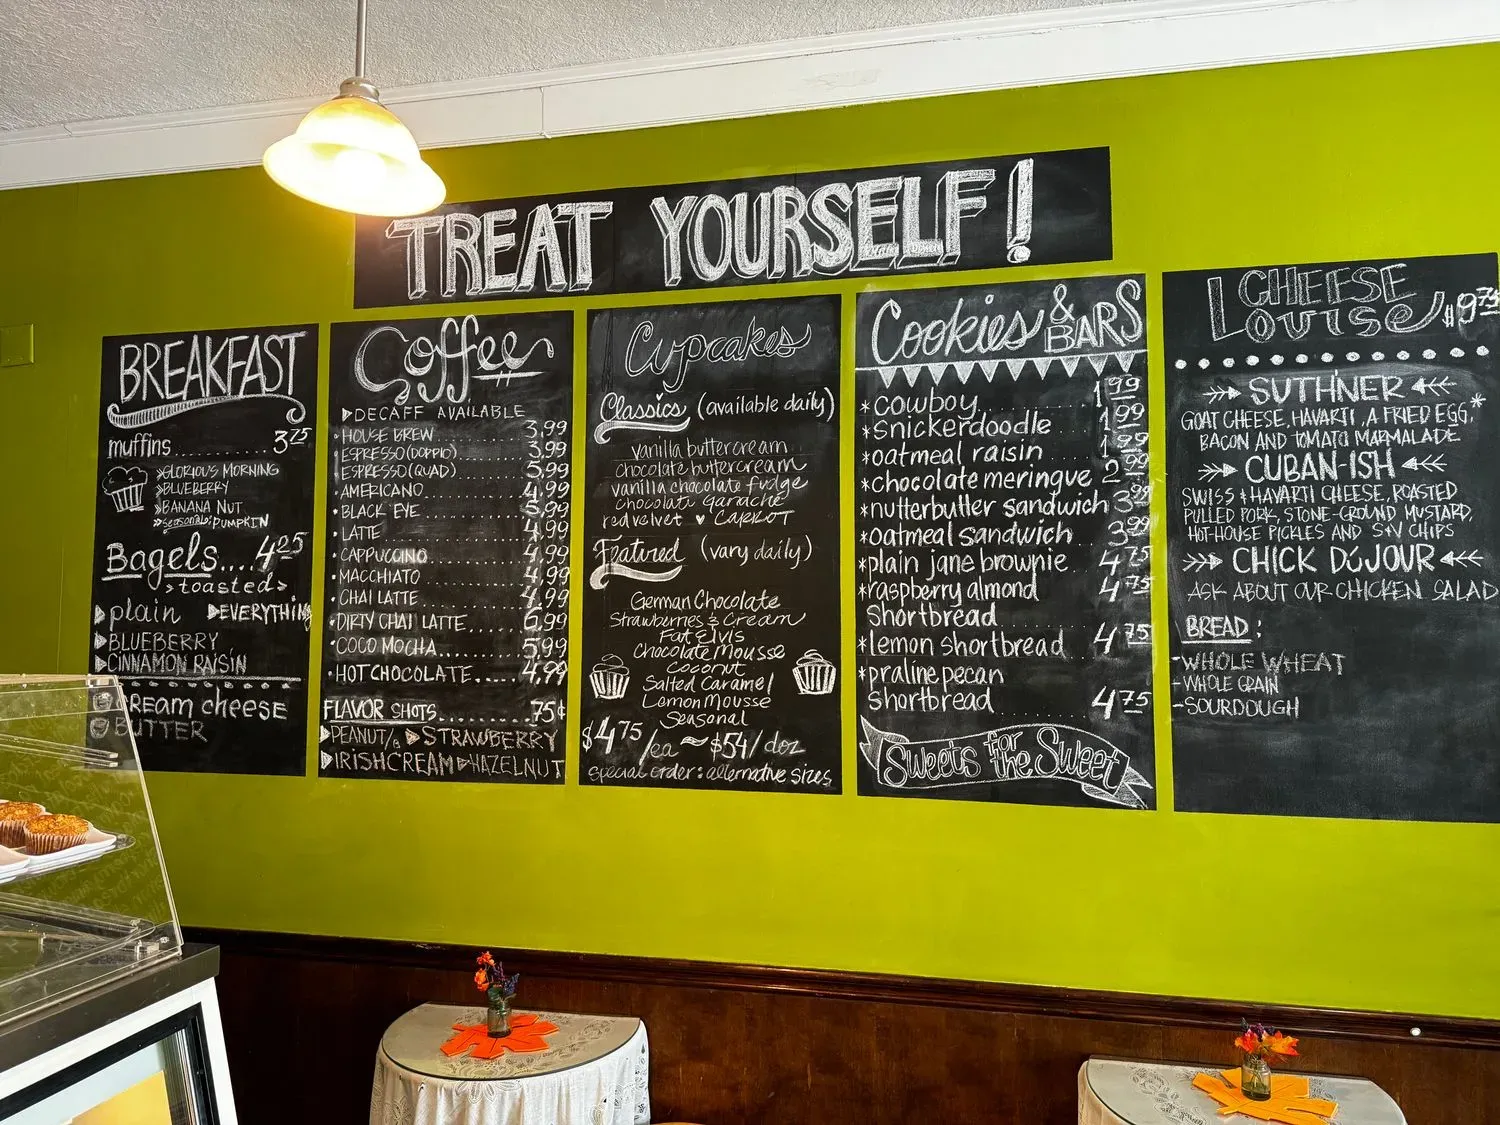 TREAT YOURSELF!
BREAKFAST
muffins........ 3.75
GLORIOUS MORNING
BLUEBERRY
BANANA NUT
seasonal: PUMPKIN
Bagels.... 4.25
toasted
plain EVERYTHING
BLUEBERRY
CINNAMON RAISIN
CREAM cheese
BUTTER
Coffee
DECAFF AVAILABLE
HOUSE BREW 3.99
ESPRESSO (DOPPIO) 3.99
ESPRESSO (QUAD) 5.99
AMERICANO 4.99
BLACK EYE 5.99
LATTE 4.99
CAPPUCCINO 4.99
MACCHIATO 4.99
CHAI LATTE 4.99
DIRTY CHAI LATTE 6.99
COCO MOCHA 5.99
HOT CHOCOLATE 4.99
FLAVOR SHOTS 75¢
PEANUT/B STRAWBERRY
IRISH CREAM HAZELNUT
Cupcakes
Classics (available daily)
vanilla buttercream
chocolate buttercream
vanilla chocolate fudge
chocolate Ganache
red velvet ♥ CARROT
Featured (vary daily)
German Chocolate
Strawberries & Cream
Fat Elvis
Chocolate Mousse
Coconut
Salted Caramel
Lemon Mousse
Seasonal
$4.75/ea ~ $54/doz
special order: alternative sizes
Cookies & BARS
*cowboy 1.99
*snickerdoodle 1.99
*oatmeal raisin 1.99
*chocolate meringue 2.99
*nutterbutter sandwich 3.99
*oatmeal sandwich 3.99
*plain jane brownie 4.75
*raspberry almond 4.75
shortbread
*lemon shortbread 4.75
*praline pecan
shortbread 4.75
Sweets for the Sweet
CHEESE
LOUISE $9.75
SUTH'NER
GOAT CHEESE, HAVARTI, A FRIED EGG,*
BACON AND TOMATO MARMALADE
CUBAN-ISH
SWISS & HAVARTI CHEESE, ROASTED
PULLED PORK, STONE-GROUND MUSTARD,
HOT-HOUSE PICKLES AND S+V CHIPS
CHICK DÚJOUR
ASK ABOUT OUR CHICKEN SALAD
BREAD:
-WHOLE WHEAT
-WHOLE GRAIN
-SOURDOUGH